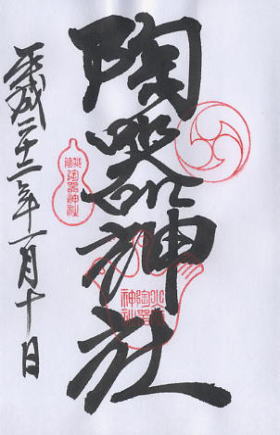 陶器神社
火防
陶器
神社
陶器神社
平成二十二年一月十日